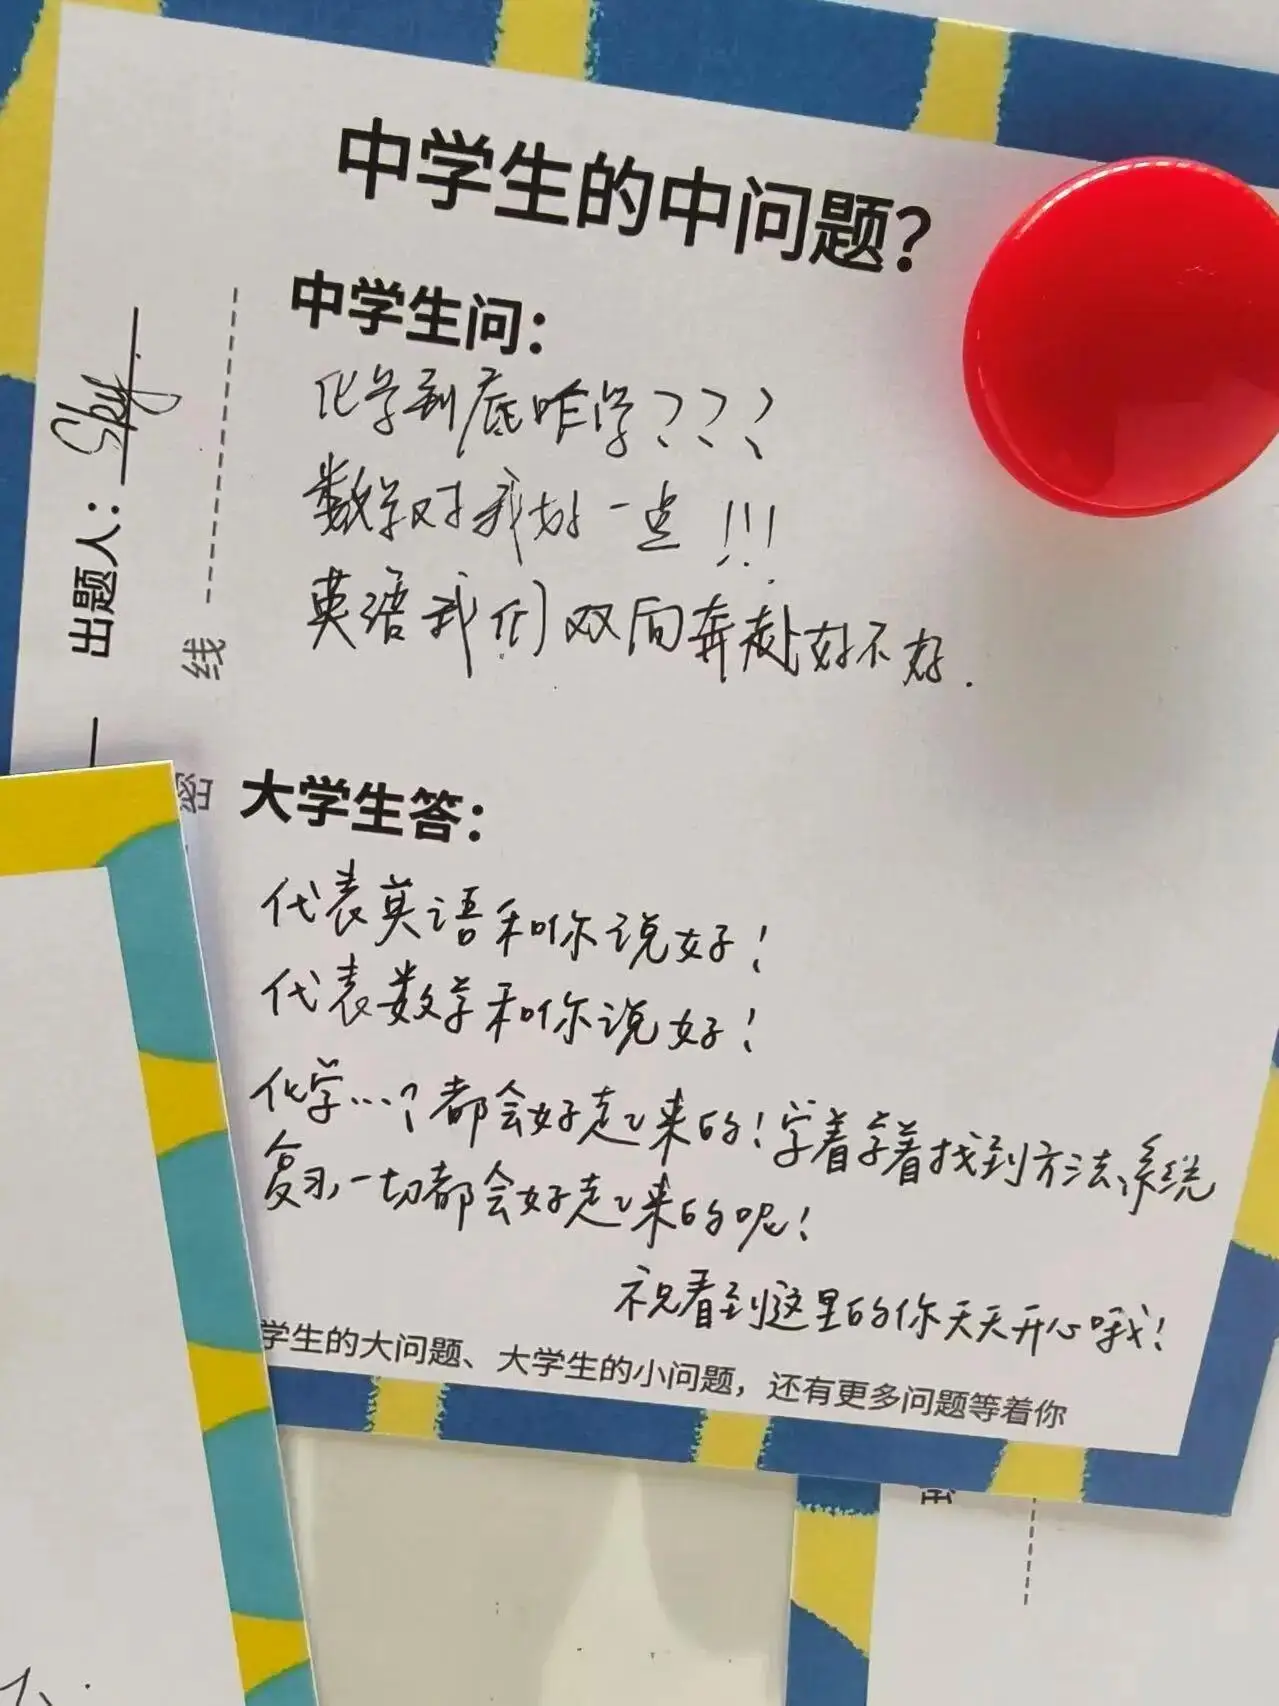 中学生的中问题？
中学生问：
化学到底咋学？？？
数学对我好一点！！！
英语我们双向奔赴好不好.
出题人：Sky.
线
密
大学生答：
代表英语和你说好！
代表数学和你说好！
化学…个都会好起来的！学着学着找到方法、系统
复习，一切都会好起来的呢！
祝看到这里的你天天开心哦！
学生的大问题、大学生的小问题，还有更多问题等着你